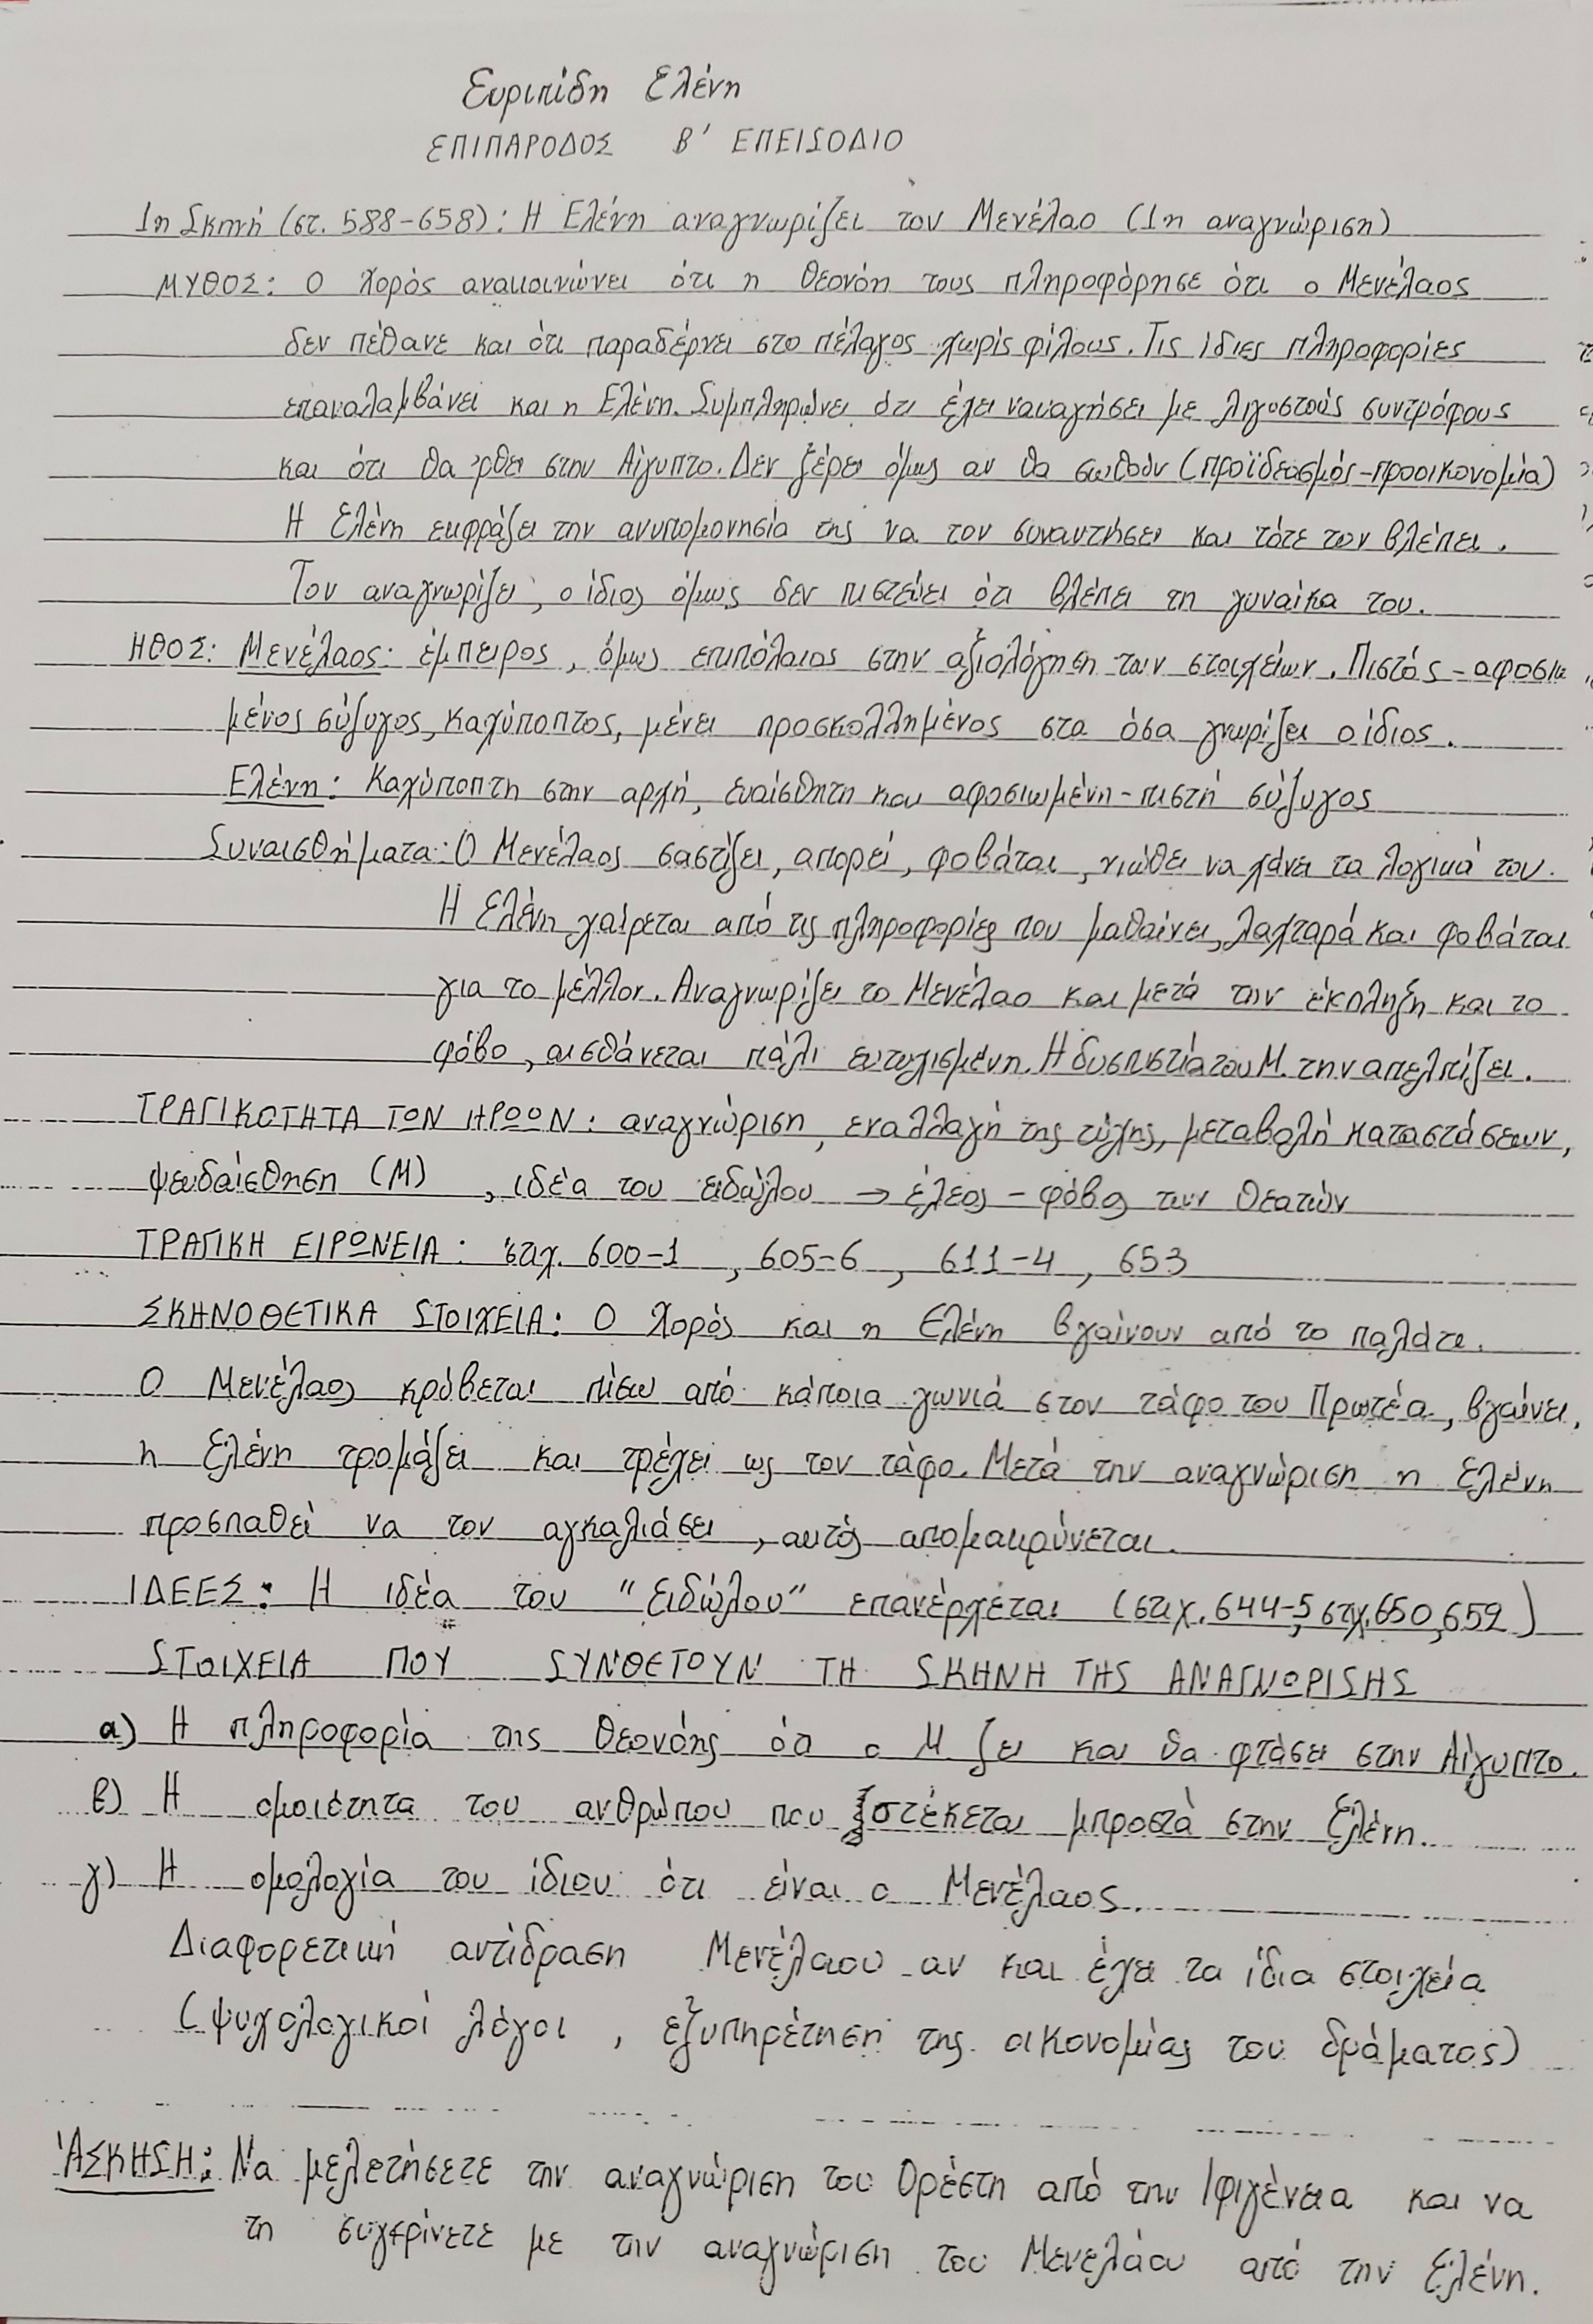 Ευριπίδη Ελένη
ΕΠΙΠΑΡΟΔΟΣ Β' ΕΠΕΙΣΟΔΙΟ
1η Σκηνή (στ. 588-658): Η Ελένη αναγνωρίζει τον Μενέλαο (1η αναγνώριση)
ΜΥΘΟΣ: Ο Χορός ανακοινώνει ότι η Θεονόη τους πληροφόρησε ότι ο Μενέλαος
δεν πέθανε και ότι παραδέρνει στο πέλαγος χωρίς φίλους. Τις ίδιες πληροφορίες
επαναλαμβάνει και η Ελένη. Συμπληρώνει ότι έχει ναυαγήσει με λιγοστούς συντρόφους
και ότι θα 'ρθει στην Αίγυπτο. Δεν ξέρει όμως αν θα σωθούν (προϊδεασμός-προοικονομία)
Η Ελένη εκφράζει την ανυπομονησία της να τον συναντήσει και τότε τον βλέπει.
Τον αναγνωρίζει, ο ίδιος όμως δεν πιστεύει ότι βλέπει τη γυναίκα του.
ΗΘΟΣ: Μενέλαος: έμπειρος, όμως επιπόλαιος στην αξιολόγηση των στοιχείων. Πιστός-αφοσιω
μένος σύζυγος, καχύποπτος, μένει προσκολλημένος στα όσα γνωρίζει ο ίδιος.
Ελένη: Καχύποπτη στην αρχή, ευαίσθητη και αφοσιωμένη-πιστή σύζυγος
Συναισθήματα: Ο Μενέλαος σαστίζει, απορεί, φοβάται, νιώθει να χάνει τα λογικά του.
Η Ελένη χαίρεται από τις πληροφορίες που μαθαίνει, λαχταρά και φοβάται
για το μέλλον. Αναγνωρίζει το Μενέλαο και μετά την έκπληξη και το
φόβο, αισθάνεται πάλι ευτυχισμένη. Η δυσπιστία του Μ. την απελπίζει.
ΤΡΑΓΙΚΟΤΗΤΑ ΤΩΝ ΗΡΩΩΝ: αναγνώριση, εναλλαγή της τύχης, μεταβολή καταστάσεων,
ψευδαίσθηση (Μ) , ιδέα του ειδώλου → έλεος - φόβος των θεατών
ΤΡΑΓΙΚΗ ΕΙΡΩΝΕΙΑ: στιχ. 600-1 , 605-6 , 611-4 , 653
ΣΚΗΝΟΘΕΤΙΚΑ ΣΤΟΙΧΕΙΑ: Ο Χορός και η Ελένη βγαίνουν από το παλάτι.
Ο Μενέλαος κρύβεται πίσω από κάποια γωνιά στον τάφο του Πρωτέα, βγαίνει,
η Ελένη τρομάζει και τρέχει ως τον τάφο. Μετά την αναγνώριση η Ελένη
προσπαθεί να τον αγκαλιάσει, αυτός απομακρύνεται.
ΙΔΕΕΣ: Η ιδέα του "ειδώλου" επανέρχεται (στιχ. 644-5, στχ. 650, 652)
ΣΤΟΙΧΕΙΑ ΠΟΥ ΣΥΝΘΕΤΟΥΝ ΤΗ ΣΚΗΝΗ ΤΗΣ ΑΝΑΓΝΩΡΙΣΗΣ
α) Η πληροφορία της Θεονόης ότι ο Μ. ζει και θα φτάσει στην Αίγυπτο.
β) Η ομοιότητα του ανθρώπου που στέκεται μπροστά στην Ελένη.
γ) Η ομολογία του ίδιου ότι είναι ο Μενέλαος.
Διαφορετική αντίδραση Μενέλαου αν και έχει τα ίδια στοιχεία
(ψυχολογικοί λόγοι , εξυπηρέτηση της οικονομίας του δράματος)
ΆΣΚΗΣΗ: Να μελετήσετε την αναγνώριση του Ορέστη από την Ιφιγένεια και να
τη συγκρίνετε με την αναγνώριση του Μενελάου από την Ελένη.